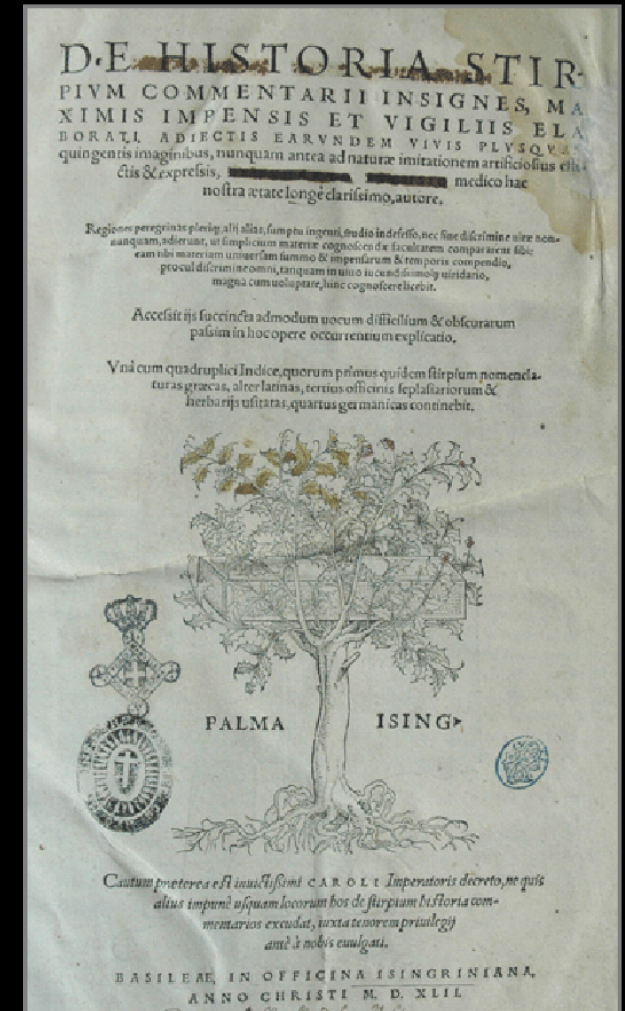 DE HISTORIA STIR-
PIVM COMMENTARII INSIGNES, MA
XIMIS IMPENSIS ET VIGILIIS ELA
BORATI, ADIECTIS EARVNDEM VIVIS PLVSQVAM
quingentis imaginibus, nunquam antea ad naturæ imitationem artificiosius effi-
ctis & expressis, medico hac
nostra ætate longè clarissimo, autore.
Regiones peregrinas plerique, alij alias, sumptu ingenti, studio indefesso, nec sine discrimine uitæ non-
nunquam, adierunt, ut simplicium materiæ cognoscendæ facultatem compararent sibi:
eam tibi materiam uniuersam summo & impensarum & temporis compendio,
procul discrimine omni, tanquam in uiuo iucundissimoq; uiridario,
magna cum uoluptate, hinc cognoscere licebit.
Accessit ijs succincta admodum uocum difficilium & obscurarum
passim in hoc opere occurrentium explicatio.
Vnà cum quadruplici Indice, quorum primus quidem stirpium nomencla-
turas græcas, alter latinas, tertius officinis seplasiariorum &
herbarijs usitatas, quartus germanicas continebit.
PALMA ISING.
Cautum præterea est inuictissimi CAROLI Imperatoris decreto, ne quis
alius impunè usquam locorum hos de stirpium historia com-
mentarios excudat, iuxta tenorem priuilegij
antè à nobis euulgati.
BASILEAE, IN OFFICINA ISINGRINIANA,
ANNO CHRISTI M. D. XLII.